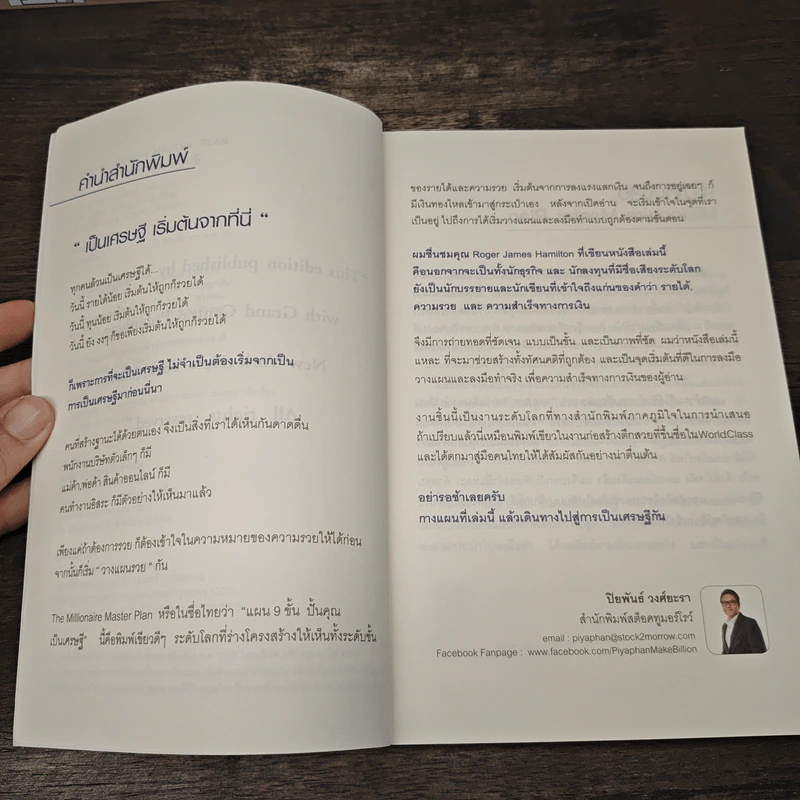 คำนำสำนักพิมพ์
“ เป็นเศรษฐี เริ่มต้นจากที่นี่ “
ทุกคนล้วนเป็นเศรษฐีได้...
วันนี้ รายได้น้อย เริ่มต้นให้ถูกก็รวยได้
วันนี้ ทุนน้อย เริ่มต้นให้ถูกก็รวยได้
วันนี้ ยัง งงๆ ก็ขอเพียงเริ่มต้นให้ถูกก็รวยได้
ก็เพราะการที่จะเป็นเศรษฐี ไม่จำเป็นต้องเริ่มจากเป็น
การเป็นเศรษฐีมาก่อนนี่นา
คนที่สร้างฐานะได้ด้วยตนเอง จึงเป็นสิ่งที่เราได้เห็นกันดาดดื่น
พนักงานบริษัทตัวเล็กๆ ก็มี
แม่ค้า,พ่อค้า สินค้าออนไลน์ ก็มี
คนทำงานอิสระ ก็มีตัวอย่างให้เห็นมาแล้ว
เพียงแค่ถ้าต้องการรวย ก็ต้องเข้าใจในความหมายของความรวยให้ได้ก่อน
จากนั้นก็เริ่ม " วางแผนรวย " กัน
The Millionaire Master Plan หรือในชื่อไทยว่า "แผน 9 ขั้น ปั้นคุณ
เป็นเศรษฐี" นี้คือพิมพ์เขียวดีๆ ระดับโลกที่ร่างโครงสร้างให้เห็นทั้งระดับชั้น
ของรายได้และความรวย เริ่มต้นจากการลงแรงแลกเงิน จนถึงการอยู่เฉยๆ ก็
มีเงินทองไหลเข้ามาสู่กระเป๋าเอง หลังจากเปิดอ่าน จะเริ่มเข้าใจในจุดที่เรา
เป็นอยู่ ไปถึงการได้เริ่มวางแผนและลงมือทำแบบถูกต้องตามขั้นตอน
ผมชื่นชมคุณ Roger James Hamilton ที่เขียนหนังสือเล่มนี้
คือนอกจากจะเป็นทั้งนักธุรกิจ และ นักลงทุนที่มีชื่อเสียงระดับโลก
ยังเป็นนักบรรยายและนักเขียนที่เข้าใจถึงแก่นของคำว่า รายได้
ความรวย และ ความสำเร็จทางการเงิน
จึงมีการถ่ายทอดที่ชัดเจน แบบเป็นขั้น และเป็นภาพที่ชัด ผมว่าหนังสือเล่มนี้
แหละ ที่จะมาช่วยสร้างทั้งทัศนคติที่ถูกต้อง และเป็นจุดเริ่มต้นที่ดีในการลงมือ
วางแผนและลงมือทำจริง เพื่อความสำเร็จทางการเงินของผู้อ่าน
งานชิ้นนี้เป็นงานระดับโลกที่ทางสำนักพิมพ์ภาคภูมิใจในการนำเสนอ
ถ้าเปรียบแล้วนี่เหมือนพิมพ์เขียวในงานก่อสร้างตึกสวยที่ขึ้นชื่อในWorldClass
และได้ตกมาสู่มือคนไทยให้ได้สัมผัสกันอย่างน่าตื่นเต้น
อย่ารอช้าเลยครับ
กางแผนที่เล่มนี้ แล้วเดินทางไปสู่การเป็นเศรษฐีกัน
ปิยพันธ์ วงศ์ยะรา
สำนักพิมพ์สต็อคทูมอร์โรว์
email : piyaphan@stock2morrow.com
Facebook Fanpage : www.facebook.com/PiyaphanMakeBillion